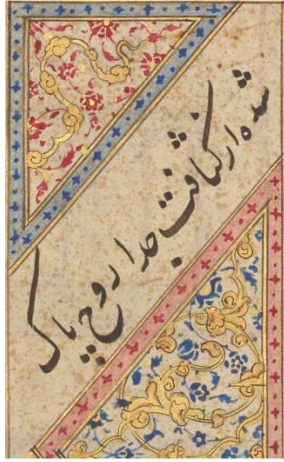 شده از کثافت جدا روح پاک